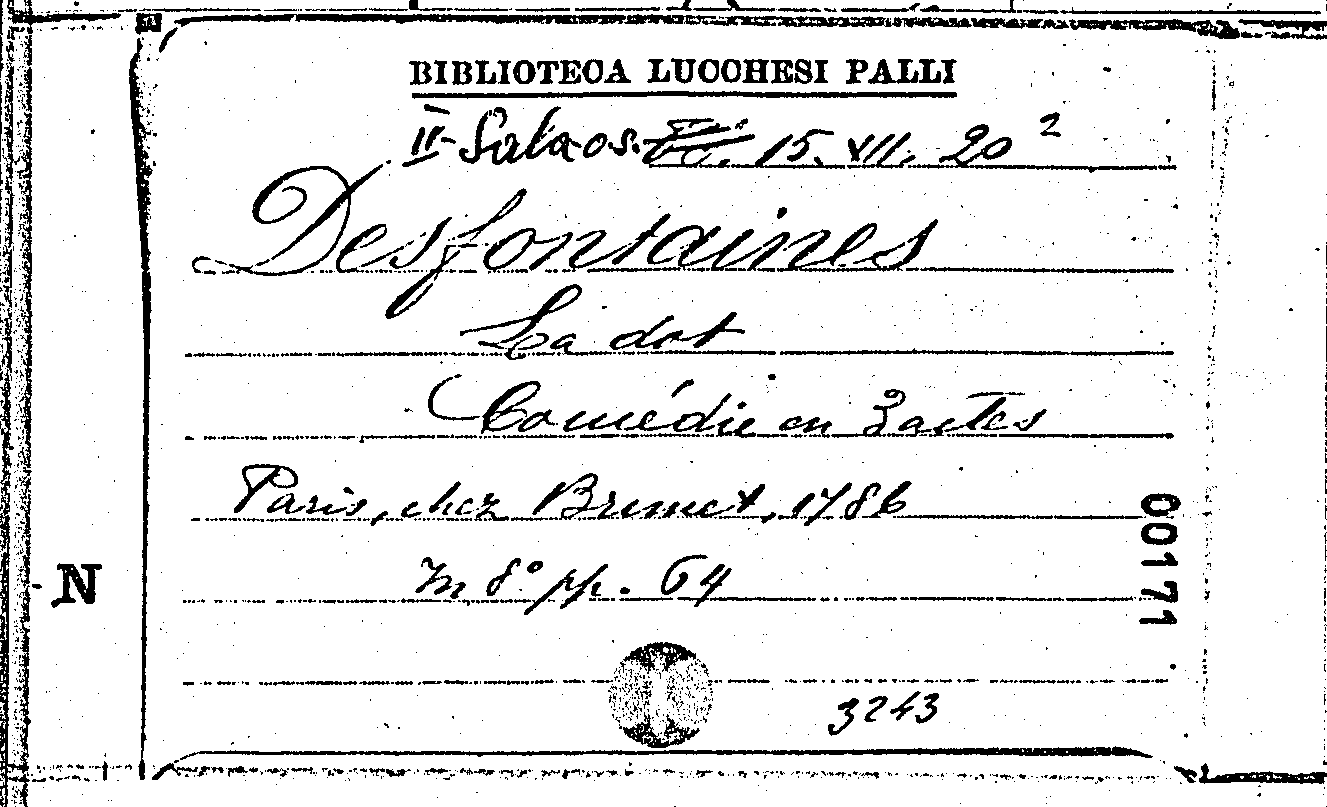 BIBLIOTECA LUCCHESI PALLI
II Sala os. 15. VII. 20²
Desfontaines
La dot
Comédie en 3 actes
Paris, chez Brunet, 1786
In 8° pp. 64
3243
00171
N